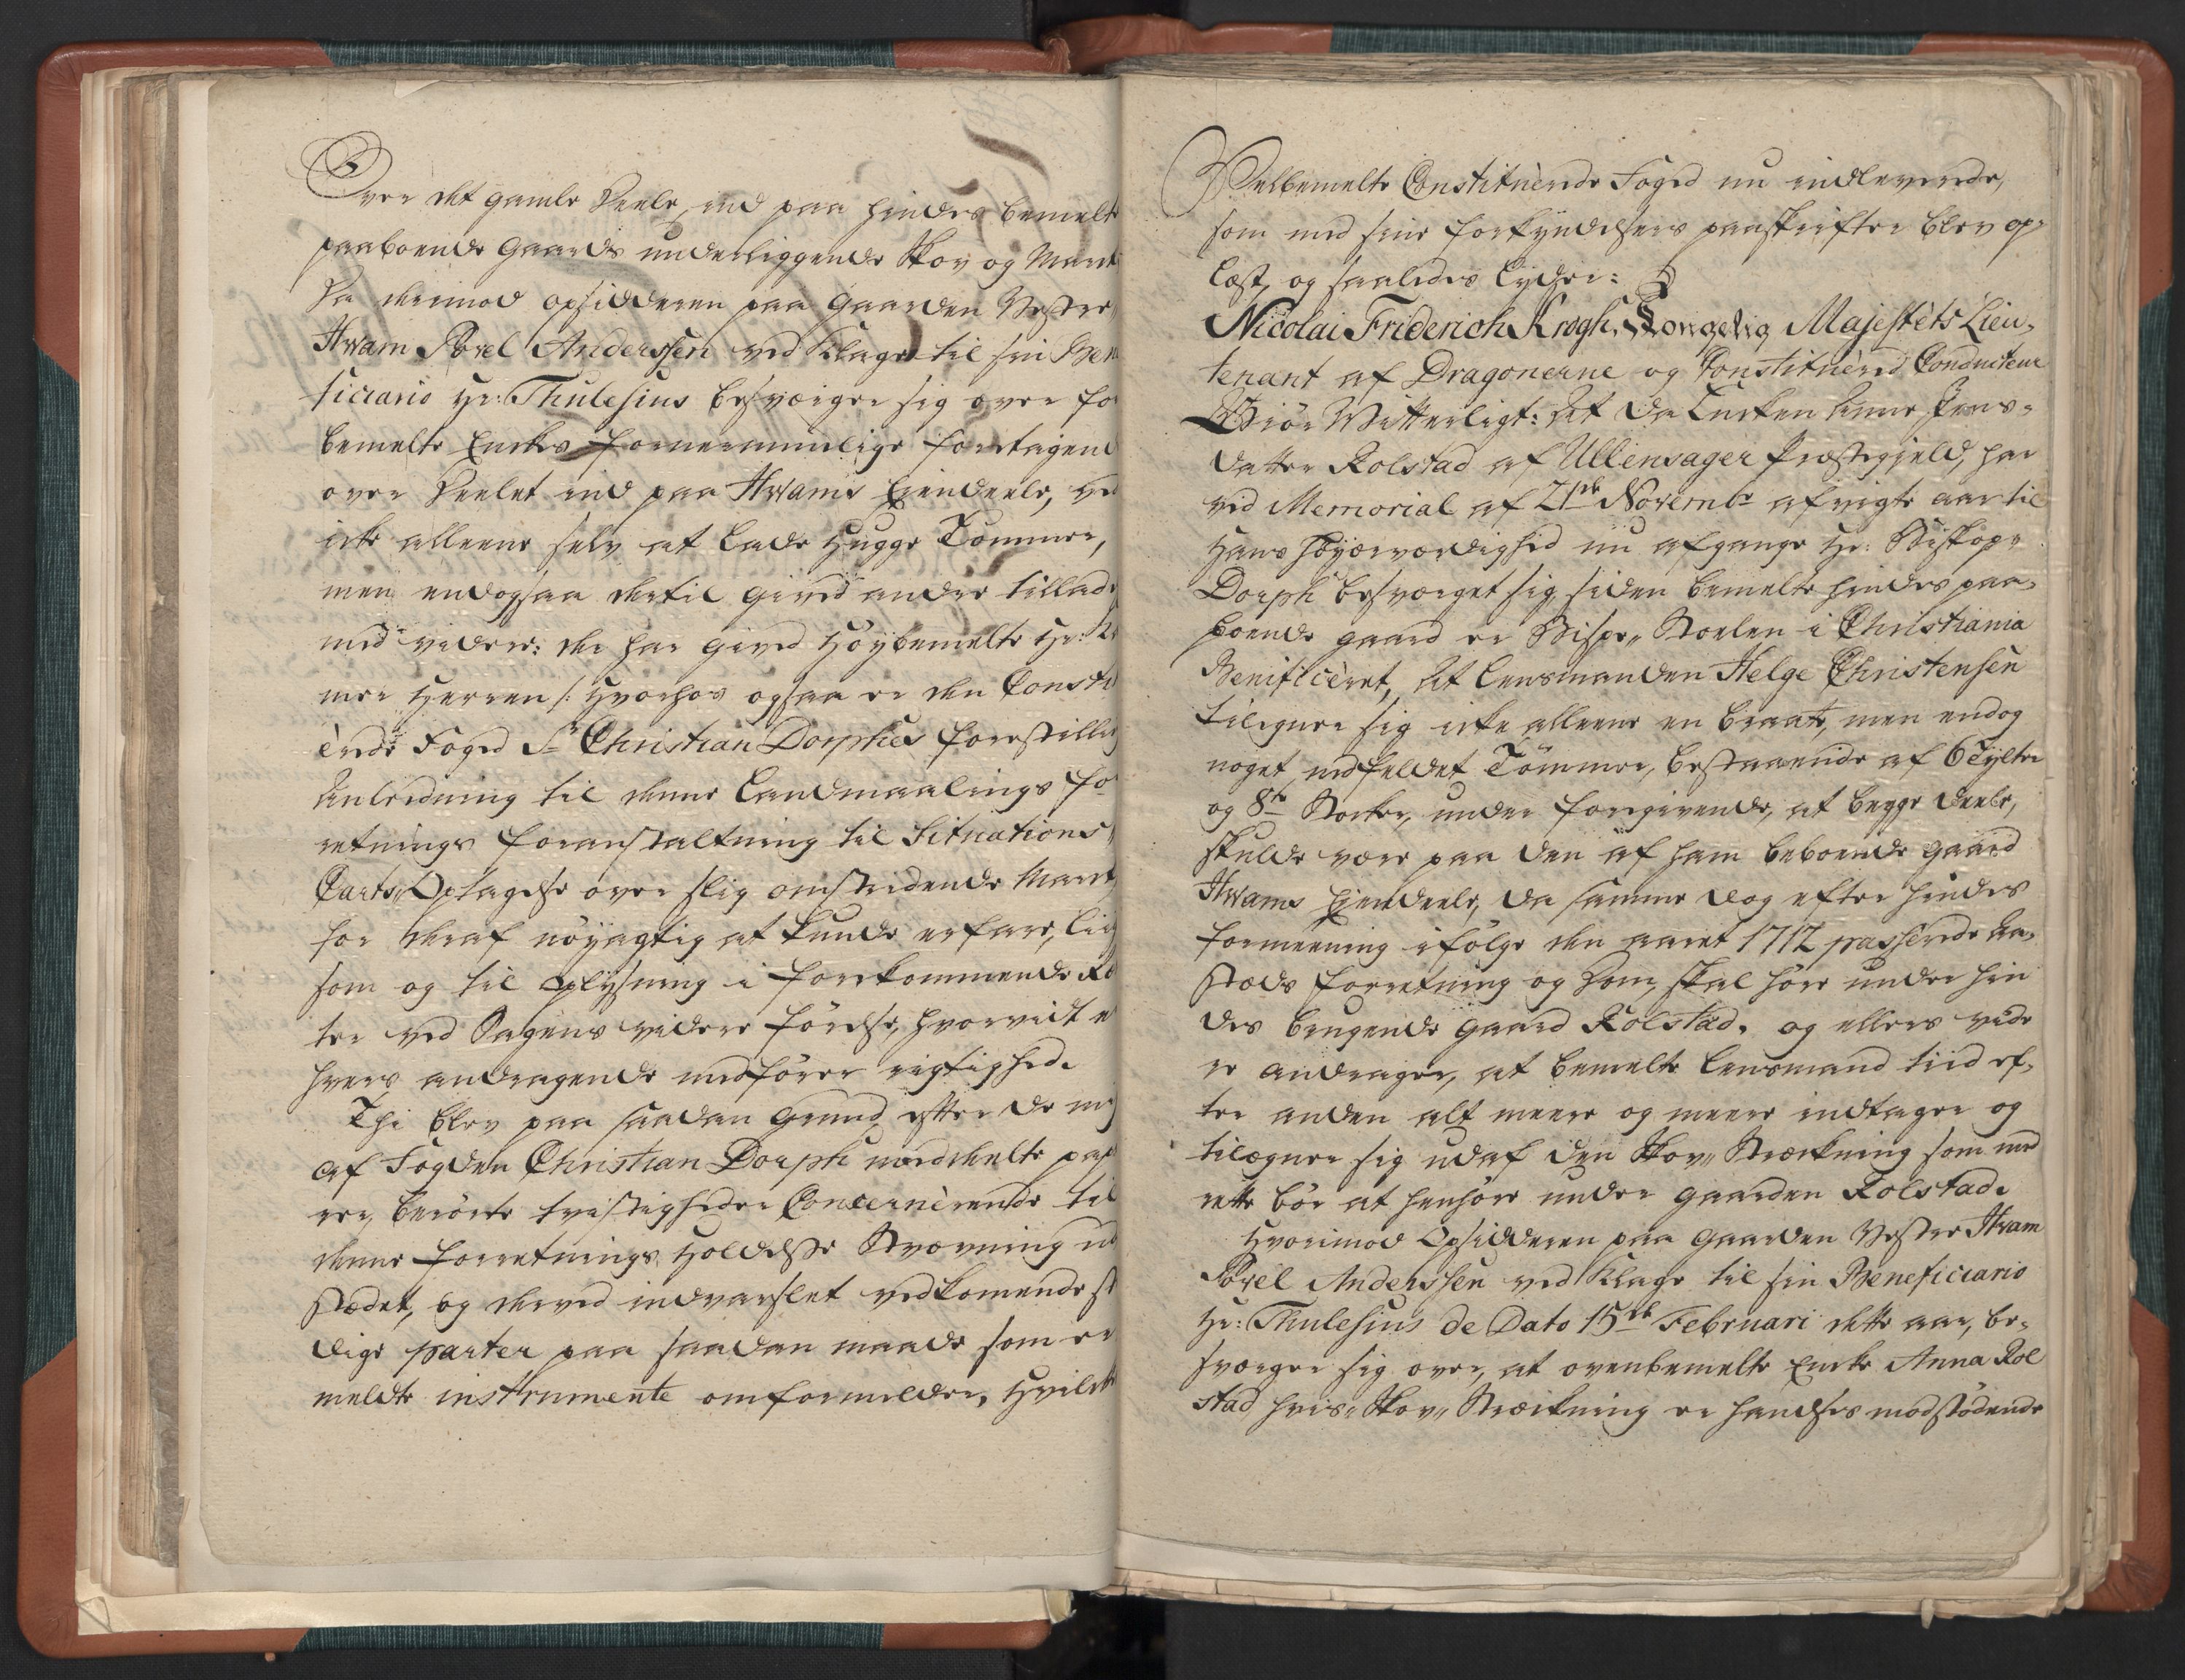 Over det gamle Deele, ind paa hendes bemelte
paaboende Gaards underliggende Skov og Mark
Da derimod opsidderen paa Gaarden Vestre
Hvam Povel Anderssen ved Klage til sin Bene
ficiario Hr: Thulesius besværger sig over for
bemelte Enkes fornermmelige foretagend
over Deelet ind paa Hvams Eiendeele, ved
icke alleene selv at lade Hugge Tömmer,
men endogsaa dertil gived andre tillade
med videre: der har gived Höybemelte Hr: 
mer Herren /: Hvorhos ogsaa er den Constitu
èrede Foged Sr Christian Dorphes forestilling
Anledning til denne Landmaalings For
retnings foranstaltning til Situations
Carts Optagelse over slig omstridende Mark
for deraf nöyagtig at kunde erfare, lige
som og til Oplysning i forekommende 
ter ved Sagens videre förelse, hvorvidt en
hvers andragende medförer rigtighed.
Thi blev paa saadan Grund, efter de mig
af Fogden Christian Dorph meddeelte papi
rer, berörte tvistigheder Concernèrende til
denne Forretnings Holdelse Stævning ud
stædet, og derved indvarslet vedkomende st
dige parter paa saadan maade som er
meldte instrumente omformelder, Hvilcket
Velbemelte Constituèrede Foged nu indleverede,
som med sine forkyndelsers paaskrifter blev op-
læst, og saaledes lyder:
Nicolai Friderich Krogh, Kongelig Majestèts Lieu-
tenant af Dragonerne og Constituèred Conducteur
Giör Witterligt: At da Encken Anne Jens-
datter Rolstad af Ullensager Præstegjeld, har
ved Memorial af 21de Novembr afvigte aar til
Hans Höyærværdighed nu afgangne Hr: Biskop
Dorph besværget sig, siden bemelte hendes paa-
boende gaard er Bispe Stoelen i Christiania
Benificèret, At Lensmanden Helge Christensen
tilegner sig icke alleene en Braate, men endog
noget nedfeldet Tömmer, bestaaende af 6 Tylter
og 8te Stocker, under foregivende, at begge deele,
skulde være paa den af ham beboende gaard
Hvams Eiendeele, da samme dog efter hendes
formeening ifölge den aaret 1712 passèrede Aa-
stæds Forretning og Dom, skal höre under hen
des brugende gaard Rolstad. og ellers vide
re andrager, at bemelte Lensmand tiid ef-
ter anden alt meere og meere indtager og
tilegner sig udaf den Skov Strækning som med
rette bör at henhöre under gaarden Rolstad.
Hvorimod Opsidderen paa Gaarden Vestre Hvam
Povel Anderssen ved Klage til sin Beneficiario
Hr: Thulesius de Dato 15de Februari dette aar, be-
sværger sig over, at ovenbemelte Encke Anna Rol
stad hvis Skov Stræckning er handses modstödende